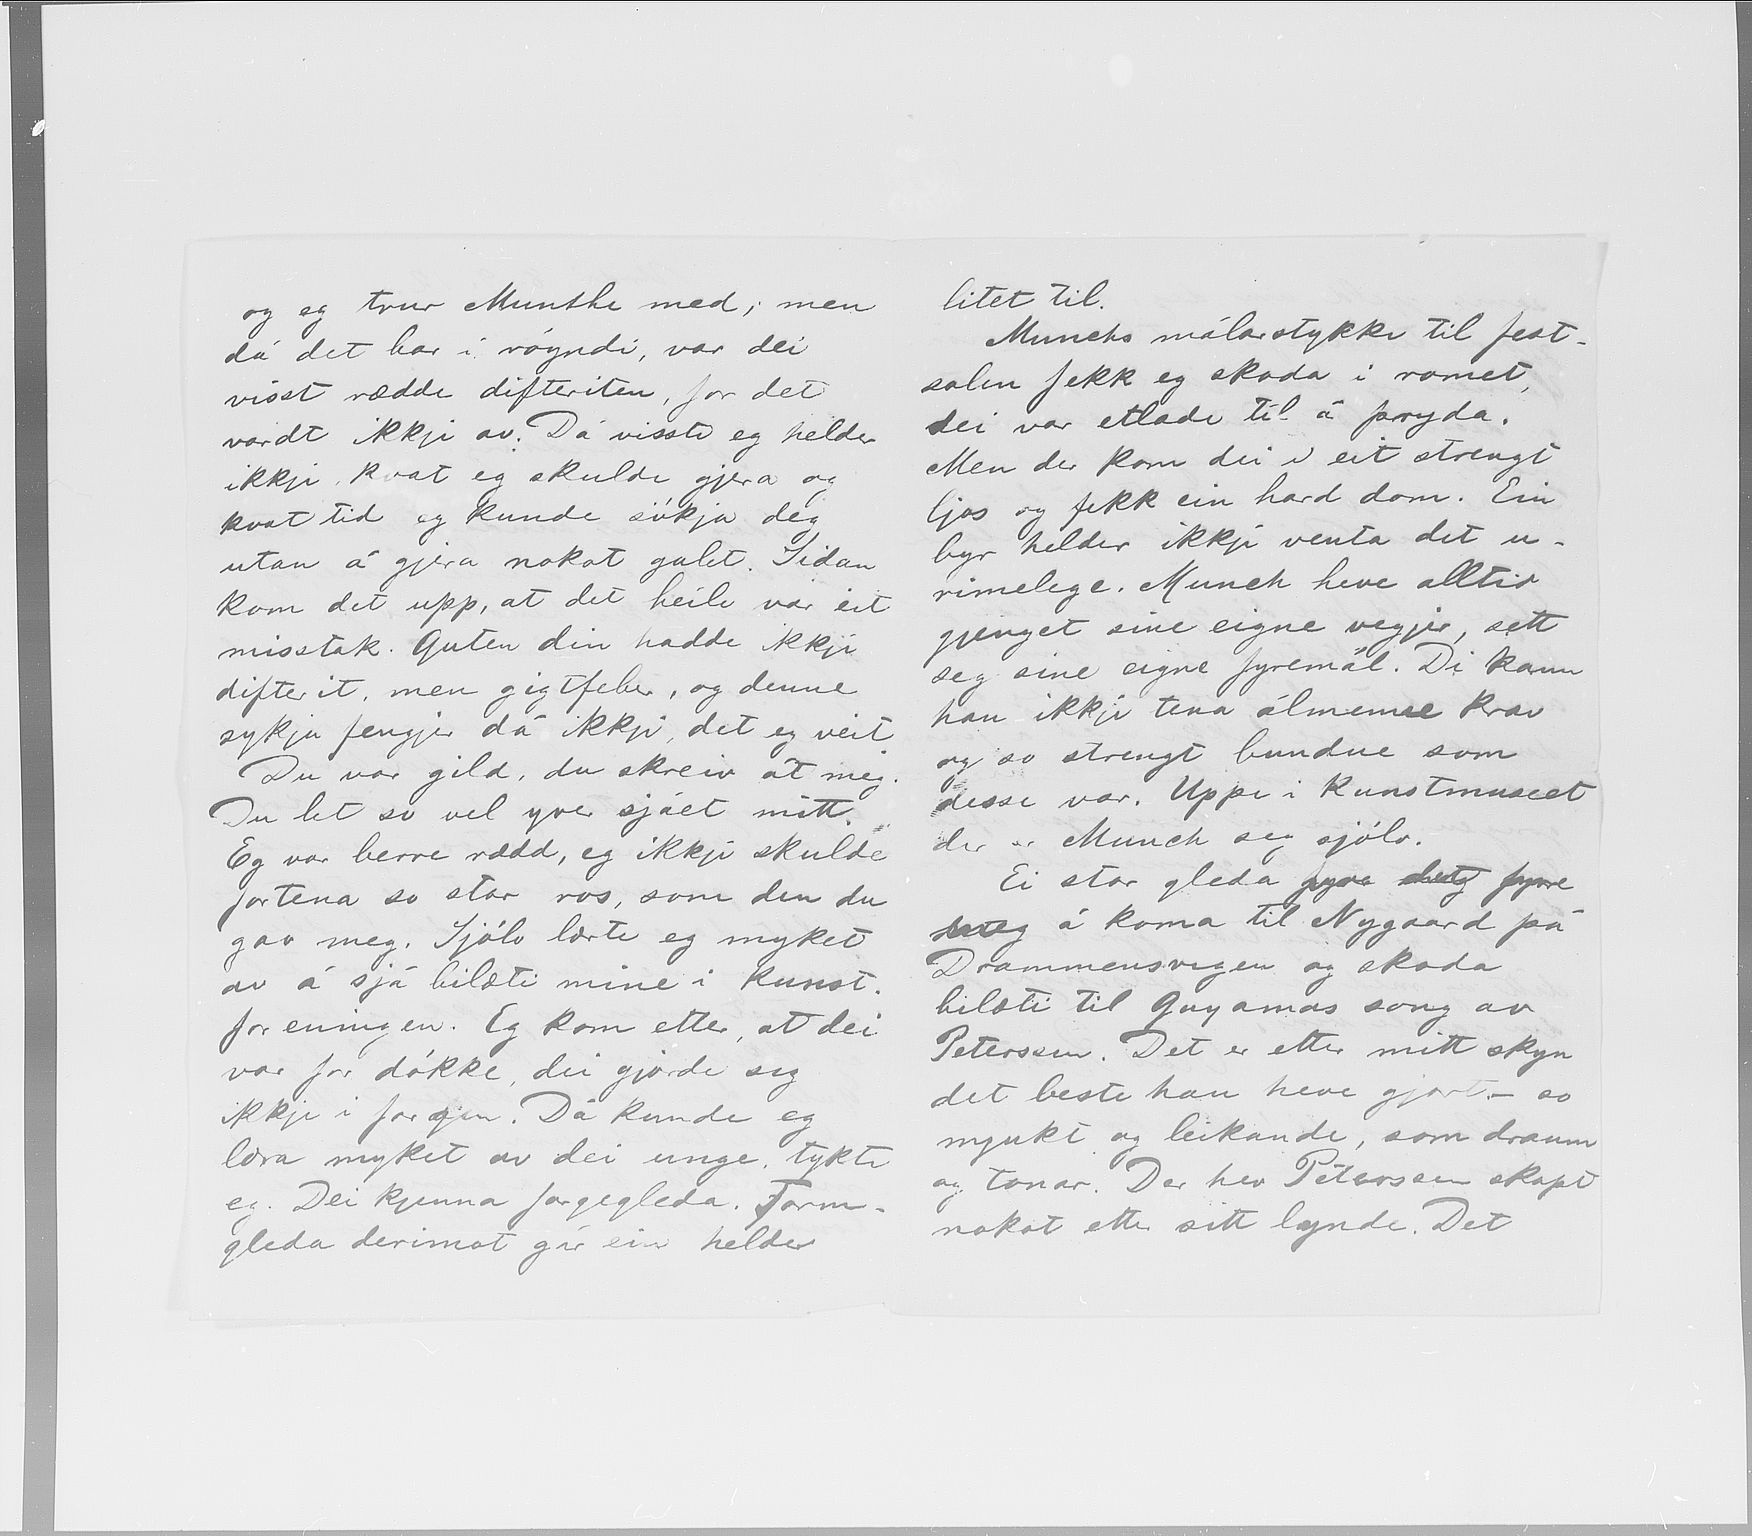 og eg trur Munthe med; men
då det bar i röyndi, var dei
visst rædde difteriten, for det
vardt ikkji av. Då visste eg helder
ikkji, kvat eg skulde gjera og
kvat tid eg kunde sökja deg
utan å gjera nokot galet. Sidan
kom det upp, at det heile var eit
misstak. Guten din hadde ikkji
difterit, men gigtfeber, og denne
sykja fengjer då ikkji, det eg veit.
Du var gild, du skreiv åt meg.
Du let so vel yver sjået mitt.
Eg var berre rædd, eg ikkji skulde
fortena so stor ros, som den du
gav meg. Sjölv lærte eg myket
av å sjå bilæti mine i Kunst-
foreningen. Eg kom etter, at dei
var for dökke, dei gjorde seg
ikkji i fargen. Då kunde eg
læra myket av dei unge, tykte
eg. Dei kjenna fargegleda. Form-
gleda derimot gir ein helder
litet til.
Munchs målarstykke til fest-
salen fekk eg skoda i romet,
dei var etlade til å pryda.
Men der kom dei i eit strengt
ljos og fekk ein hard dom. Ein
byr helder ikkji venta det u-
rimelege. Munch heve alltid
gjenget sine eigne vegjer, sett
seg sine eigne fyremål. Di kann
han ikkji tena ålmenne krav
og so strengt bundne som
desse var. Uppe i Kunstmuseet
der er Munch seg sjölv.
Ei stor gleda fyre
meg å koma til Nygaard på
Drammensvegen og skoda
bilæti til Guyamas song av
Peterssen. Det er etter mitt skyn
det beste han heve gjort – so
mjukt og leikande, som draum
og tonar. Der hev Peterssen skapt
nokot etter sitt lynde. Det